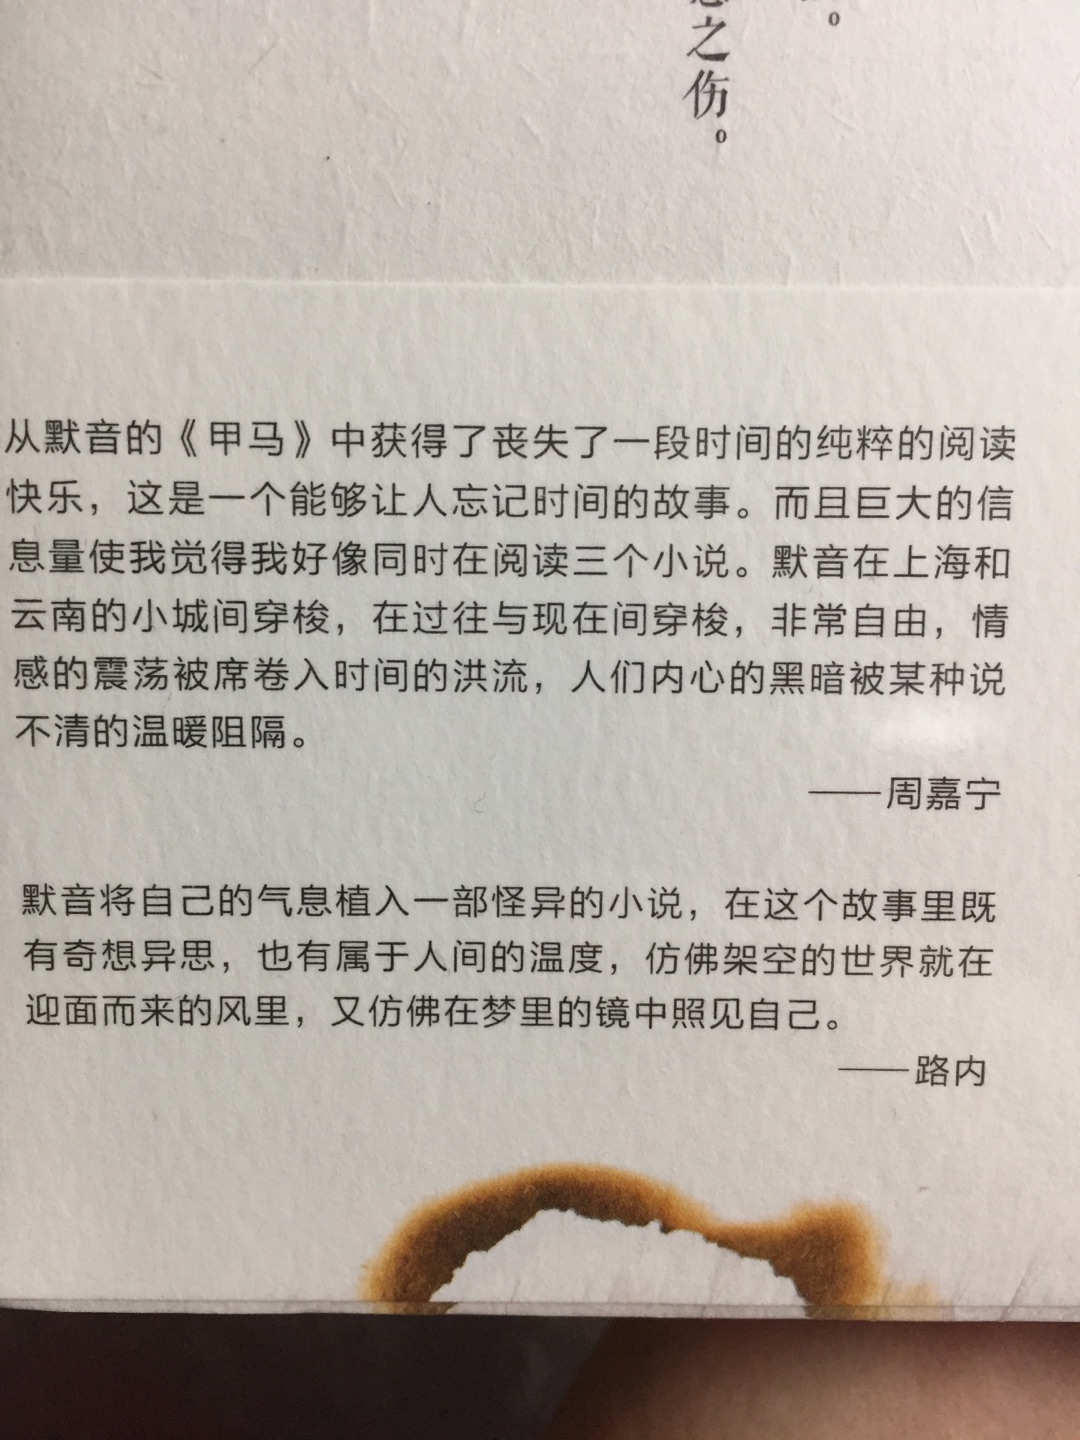 之伤。
从默音的《甲马》中获得了丧失了一段时间的纯粹的阅读
快乐，这是一个能够让人忘记时间的故事。而且巨大的信
息量使我觉得我好像同时在阅读三个小说。默音在上海和
云南的小城间穿梭，在过往与现在间穿梭，非常自由，情
感的震荡被席卷入时间的洪流，人们内心的黑暗被某种说
不清的温暖阻隔。
——周嘉宁
默音将自己的气息植入一部怪异的小说，在这个故事里既
有奇想异思，也有属于人间的温度，仿佛架空的世界就在
迎面而来的风里，又仿佛在梦里的镜中照见自己。
——路内